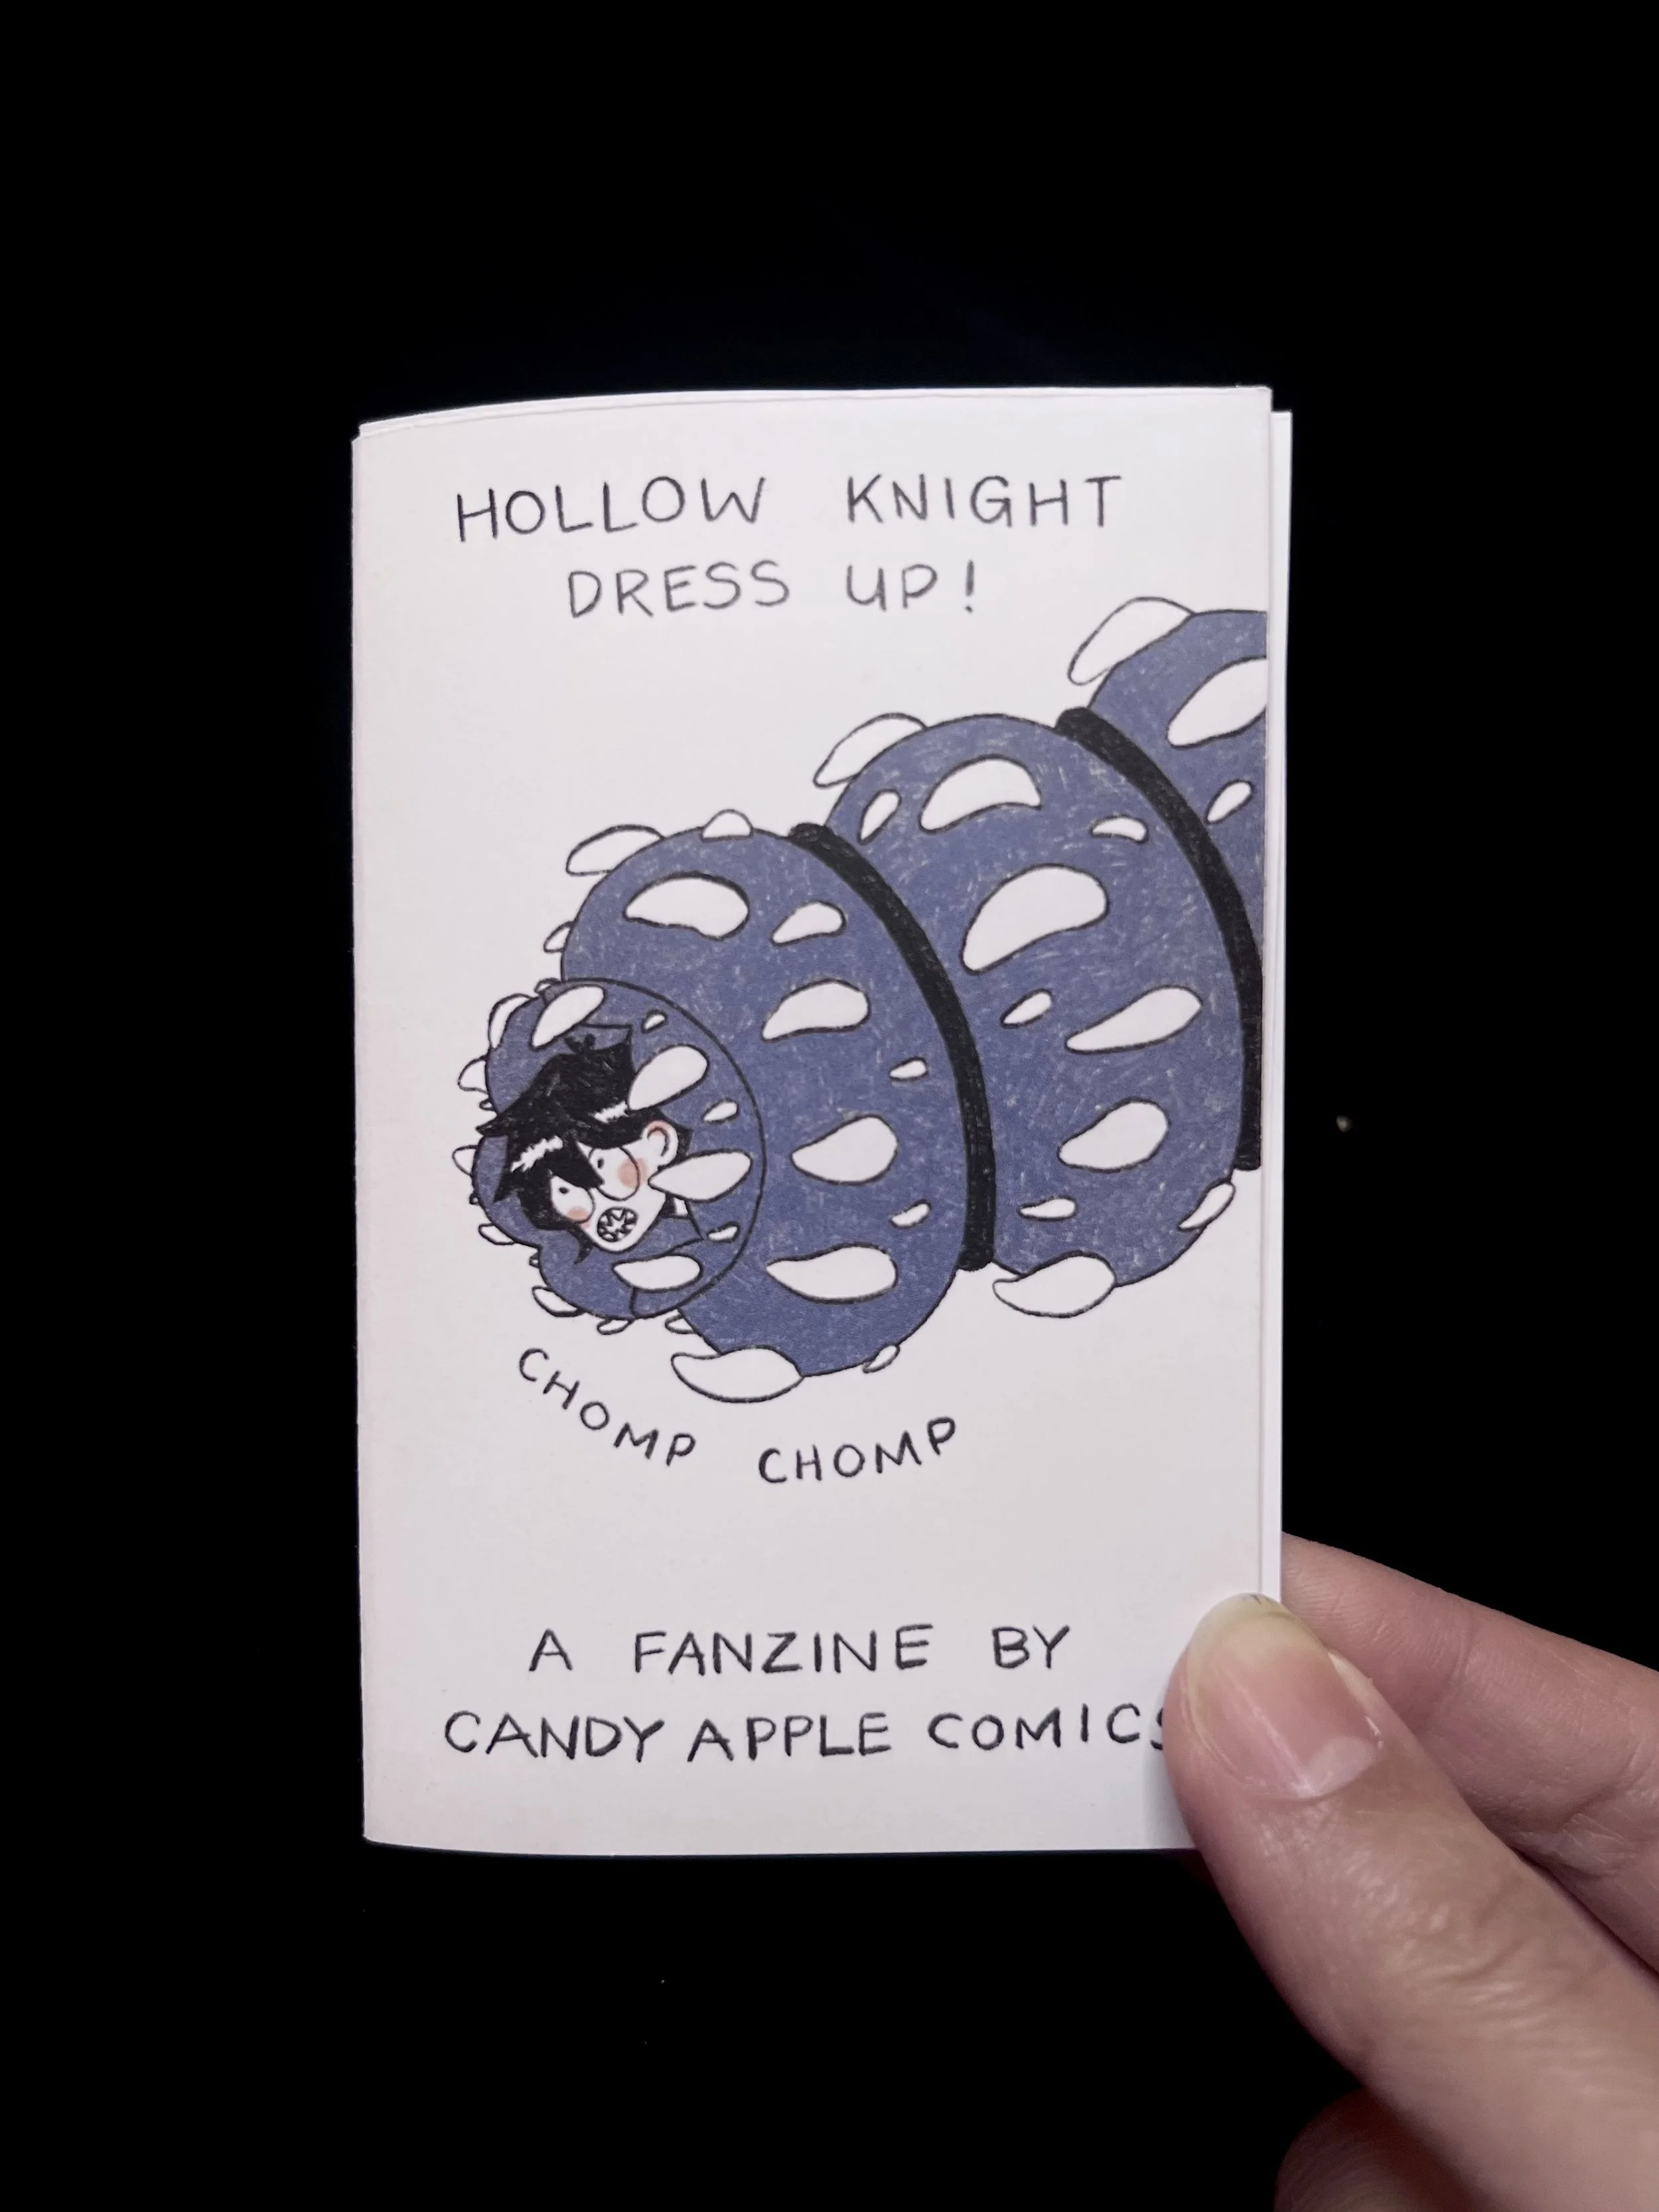 HOLLOW KNIGHT
DRESS UP!
CHOMP CHOMP
A FANZINE BY
CANDY APPLE COMICS